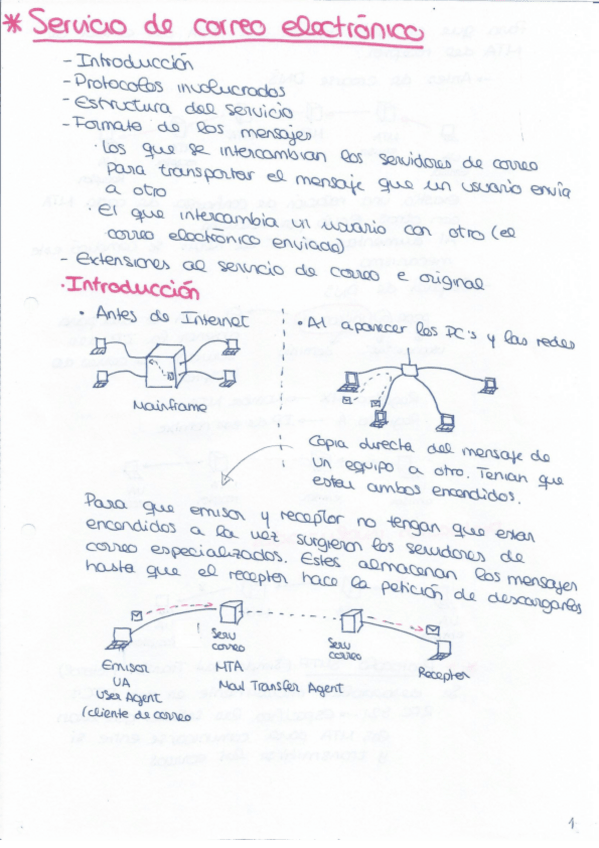 * Servicio de correo electrónico
- Introducción
- Protocolos involucrados
- Estructura del servicio
- Formato de los mensajes
· Los que se intercambian los servidores de correo
para transportar el mensaje que un usuario envía
a otro
· El que intercambia un usuario con otro (el
correo electrónico enviado)
- Extensiones al servicio de correo e original
· Introducción
• Antes de Internet
Mainframe
• Al aparecer los PC's y las redes
Copia directa del mensaje de
un equipo a otro. Tenían que
estar ambos encendidos.
Para que emisor y receptor no tengan que estar
encendidos a la vez surgieron los servidores de
correo especializados. Estos almacenan los mensajes
hasta que el receptor hace la petición de descargarlos
Emisor
UA
User Agent
(cliente de correo
Serv
correo
MTA
Mail Transfer Agent
Serv
correo
Receptor
1